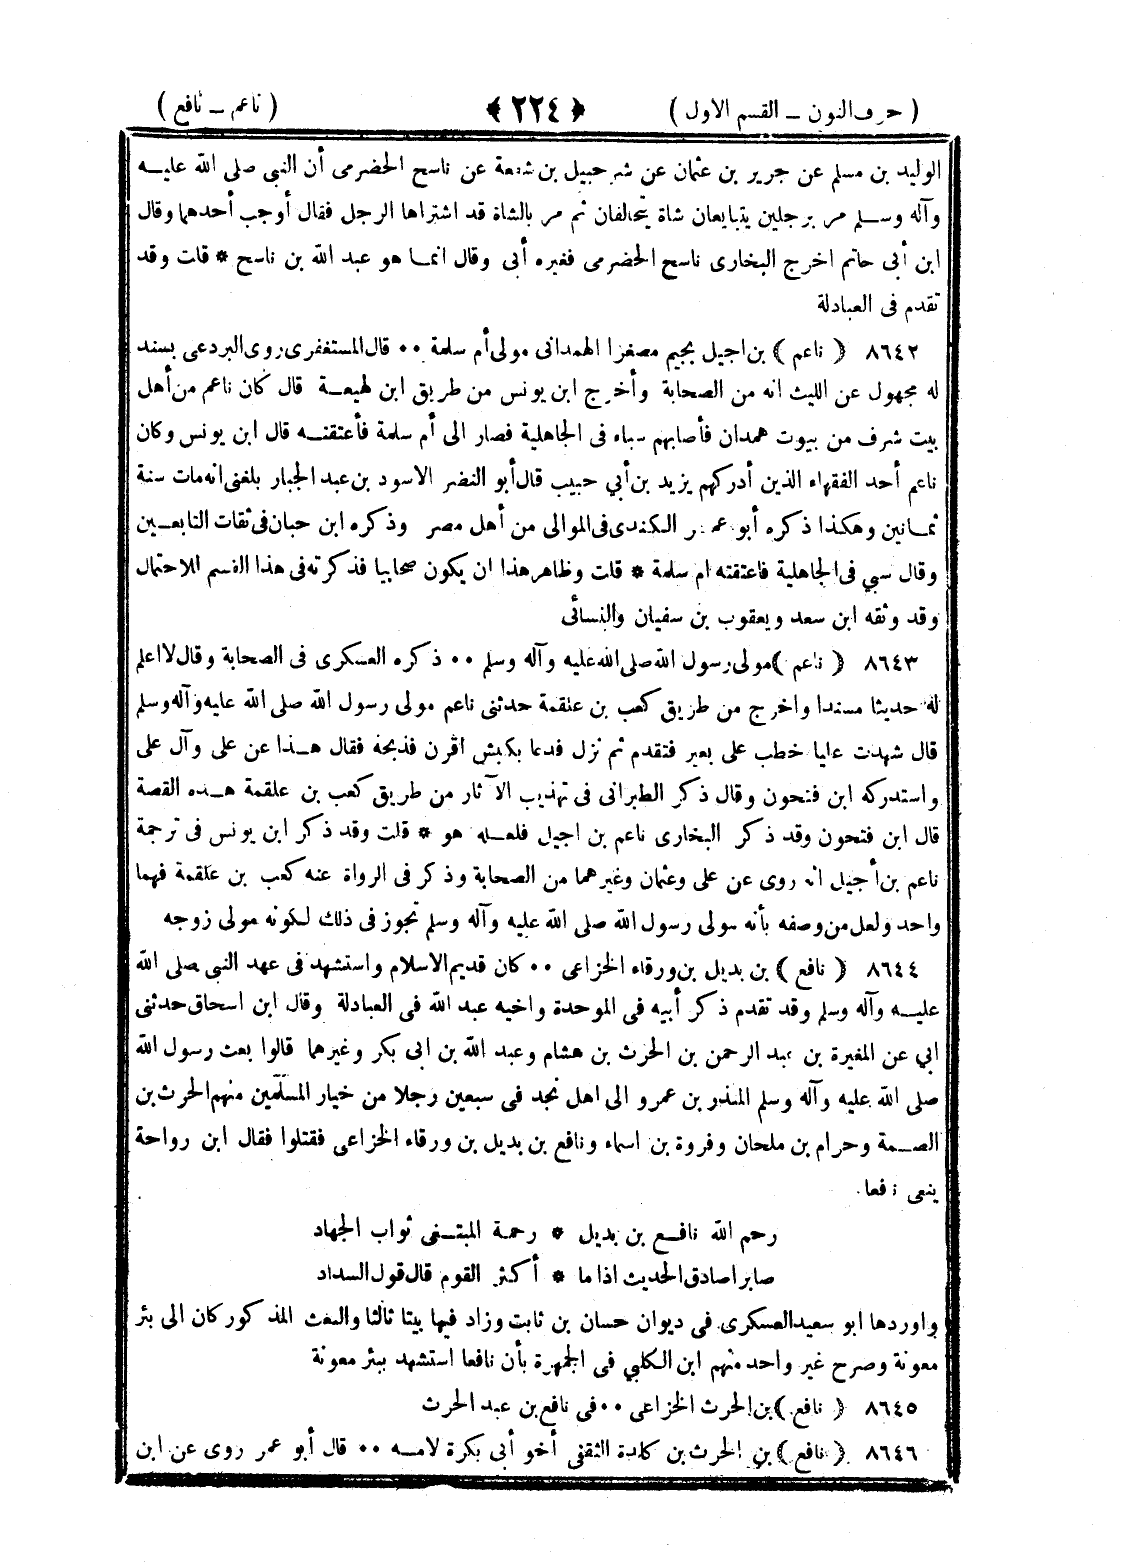 ( حرف النون ــ القسم الاول ) ﴿ ٢٢٤ ﴾ ( ناعم ــ نافع )
الوليد بن مسلم عن جرير بن عثمان عن شرحبيل بن شفعة عن ناسح الحضرمى أن النبى صلى الله عليــه
وآله وســلم مر برجلين يتبايعان شاة يتحالفان ثم مر بالشاة قد اشتراها الرجل فقال أوجب أحدهما وقال
ابن أبى حاتم اخرج البخارى ناسح الحضرمى فغيره أبى وقال انمـا هو عبد الله بن ناسح * قلت وقد
تقدم فى العبادلة
٨٦٤٢ ( ناعم ) بن اجيل بجيم مصغرا الهمدانى مولى أم سلمة ٠٠ قال المستغفرى روى البردعى بسند
له مجهول عن الليث انه من الصحابة وأخرج ابن يونس من طريق ابن لهيعــة قال كان ناعم من أهل
بيت شرف من بيوت همدان فأصابهم سباء فى الجاهلية فصار الى أم سلمة فأعتقتــه قال ابن يونس وكان
ناعم أحد الفقهاء الذين أدركهم يزيد بن أبي حبيب قال أبو النضر الاسود بن عبد الجبار بلغنى انه مات سنة
ثمـانين وهكذا ذكره أبو عمـر الكندى فى الموالى من أهل مصر وذكره ابن حبان فى ثقات التابعــين
وقال سبي فى الجاهلية فاعتقته ام سلمة * قلت وظاهر هذا ان يكون صحابيا فذكرته فى هذا القسم للاحتمال
وقد وثقه ابن سعد ويعقوب بن سفيان والنسائى
٨٦٤٣ ( ناعم ) مولى رسول الله صلى الله عليه وآله وسلم ٠٠ ذكره العسكرى فى الصحابة وقال لا اعلم
له حديثا مسندا واخرج من طريق كعب بن علقمة حدثنى ناعم مولى رسول الله صلى الله عليه وآله وسلم
قال شهدت عليا خطب على بعير فتقدم ثم نزل فدعا بكبش اقرن فذبحه فقال هــذا عن على وآل على
واستدركه ابن فتحون وقال ذكر الطبرانى فى تهذيب الآثار من طريق كعب بن علقمة هــذه القصة
قال ابن فتحون وقد ذكر البخارى ناعم بن اجيل فلعــله هو * قلت وقد ذكر ابن يونس فى ترجمة
ناعم بن أجيل انه روى عن على وعثمان وغيرهما من الصحابة وذكر فى الرواة عنه كعب بن علقمة فهما
واحد ولعل من وصفه بأنه مولى رسول الله صلى الله عليه وآله وسلم تجوز فى ذلك لكونه مولى زوجه
٨٦٤٤ ( نافع ) بن بديل بن ورقاء الخزاعى ٠٠ كان قديم الاسلام واستشهد فى عهد النبى صلى الله
عليــه وآله وسلم وقد تقدم ذكر أبيه فى الموحدة واخيه عبد الله فى العبادلة وقال ابن اسحاق حدثنى
ابي عن المغيرة بن عبد الرحمن بن الحرث بن هشام وعبد الله بن ابى بكر وغيرهما قالوا بعث رسول الله
صلى الله عليه وآله وسلم المنذر بن عمرو الى اهل نجد فى سبعين رجلا من خيار المسلمين منهم الحرث بن
الصــمة وحرام بن ملحان وفروة بن اسماء ونافع بن بديل بن ورقاء الخزاعى فقتلوا فقال ابن رواحة
ينعى نافعا
رحم الله نافــع بن بديل * رحمــة المبتــغى ثواب الجهاد
صابرا صادق الحديث اذا ما * أكثر القوم قال قول السداد
واوردها ابو سعيد العسكرى فى ديوان حسان بن ثابت وزاد فيها بيتا ثالثا والبعث المذكور كان الى بئر
معونة وصرح غير واحد منهم ابن الكلبي فى الجمهرة بأن نافعا استشهد ببئر معونة
٨٦٤٥ ( نافع ) بن الحرث الخزاعى ٠٠ فى نافع بن عبد الحرث
٨٦٤٦ ( نافع ) بن الحرث بن كلدة الثقفى أخو أبي بكرة لامــه ٠٠ قال أبو عمر روى عن ابن